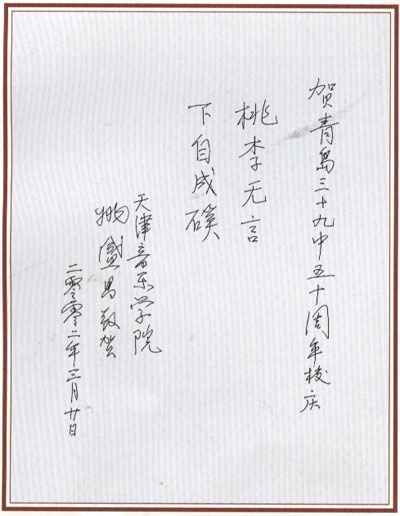 贺青岛三十九中五十周年校庆
桃李无言
下自成磎
天津音乐学院
姚盛昌敬贺
二零零二年三月廿日